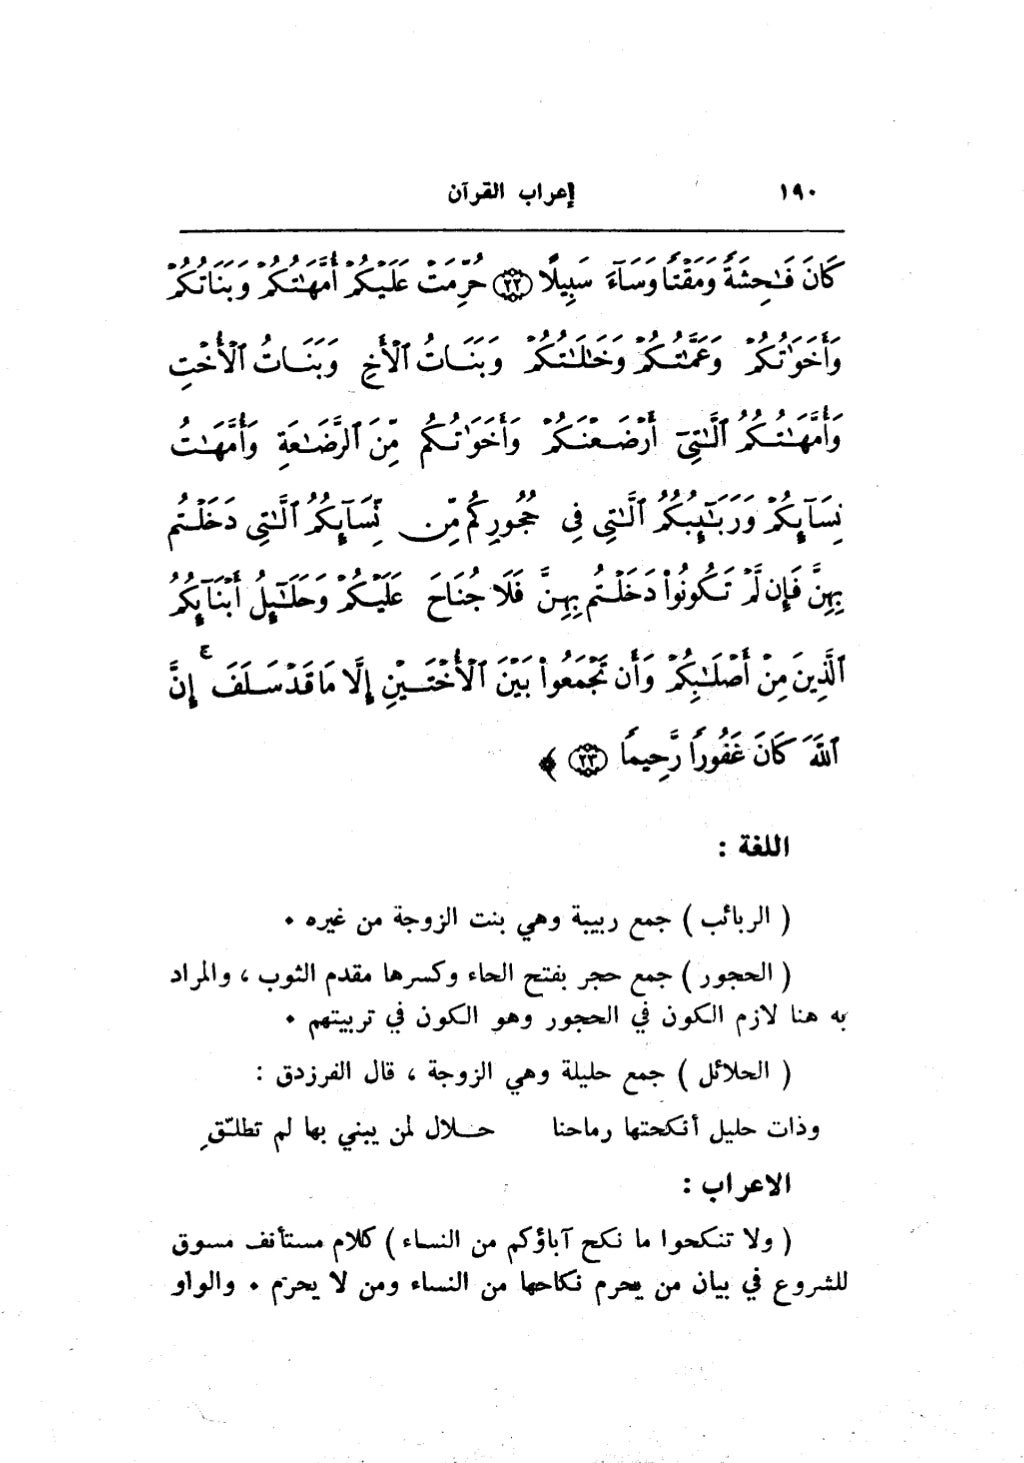 ١٩٠ إعراب القرآن
كَانَ فَٰحِشَةً وَمَقْتًا وَسَآءَ سَبِيلًا ﴿٢٢﴾ حُرِّمَتْ عَلَيْكُمْ أُمَّهَٰتُكُمْ وَبَنَاتُكُمْ
وَأَخَوَٰتُكُمْ وَعَمَّٰتُكُمْ وَخَٰلَٰتُكُمْ وَبَنَاتُ ٱلْأَخِ وَبَنَاتُ ٱلْأُخْتِ
وَأُمَّهَٰتُكُمُ ٱلَّٰتِىٓ أَرْضَعْنَكُمْ وَأَخَوَٰتُكُم مِّنَ ٱلرَّضَٰعَةِ وَأُمَّهَٰتُ
نِسَآئِكُمْ وَرَبَٰٓئِبُكُمُ ٱلَّٰتِى فِى حُجُورِكُم مِّن نِّسَآئِكُمُ ٱلَّٰتِى دَخَلْتُم
بِهِنَّ فَإِن لَّمْ تَكُونُوا۟ دَخَلْتُم بِهِنَّ فَلَا جُنَاحَ عَلَيْكُمْ وَحَلَٰٓئِلُ أَبْنَآئِكُمُ
ٱلَّذِينَ مِنْ أَصْلَٰبِكُمْ وَأَن تَجْمَعُوا۟ بَيْنَ ٱلْأُخْتَيْنِ إِلَّا مَا قَدْ سَلَفَ ۗ إِنَّ
ٱللَّهَ كَانَ غَفُورًا رَّحِيمًا ﴿٢٣﴾ ﴾
اللغة :
( الربائب ) جمع ربيبة وهي بنت الزوجة من غيره ٠
( الحجور ) جمع حجر بفتح الحاء وكسرها مقدم الثوب ، والمراد
به هنا لازم الكون في الحجور وهو الكون في تربيتهم ٠
( الحلائل ) جمع حليلة وهي الزوجة ، قال الفرزدق :
وذات حليل أنكحتها رماحنا حـلال لمن يبني بها لم تطلـّقِ
الاعراب :
( ولا تنكحوا ما نكح آباؤكم من النساء ) كلام مستأنف مسوق
للشروع في بيان من يحرم نكاحها من النساء ومن لا يحرم ٠ والواو